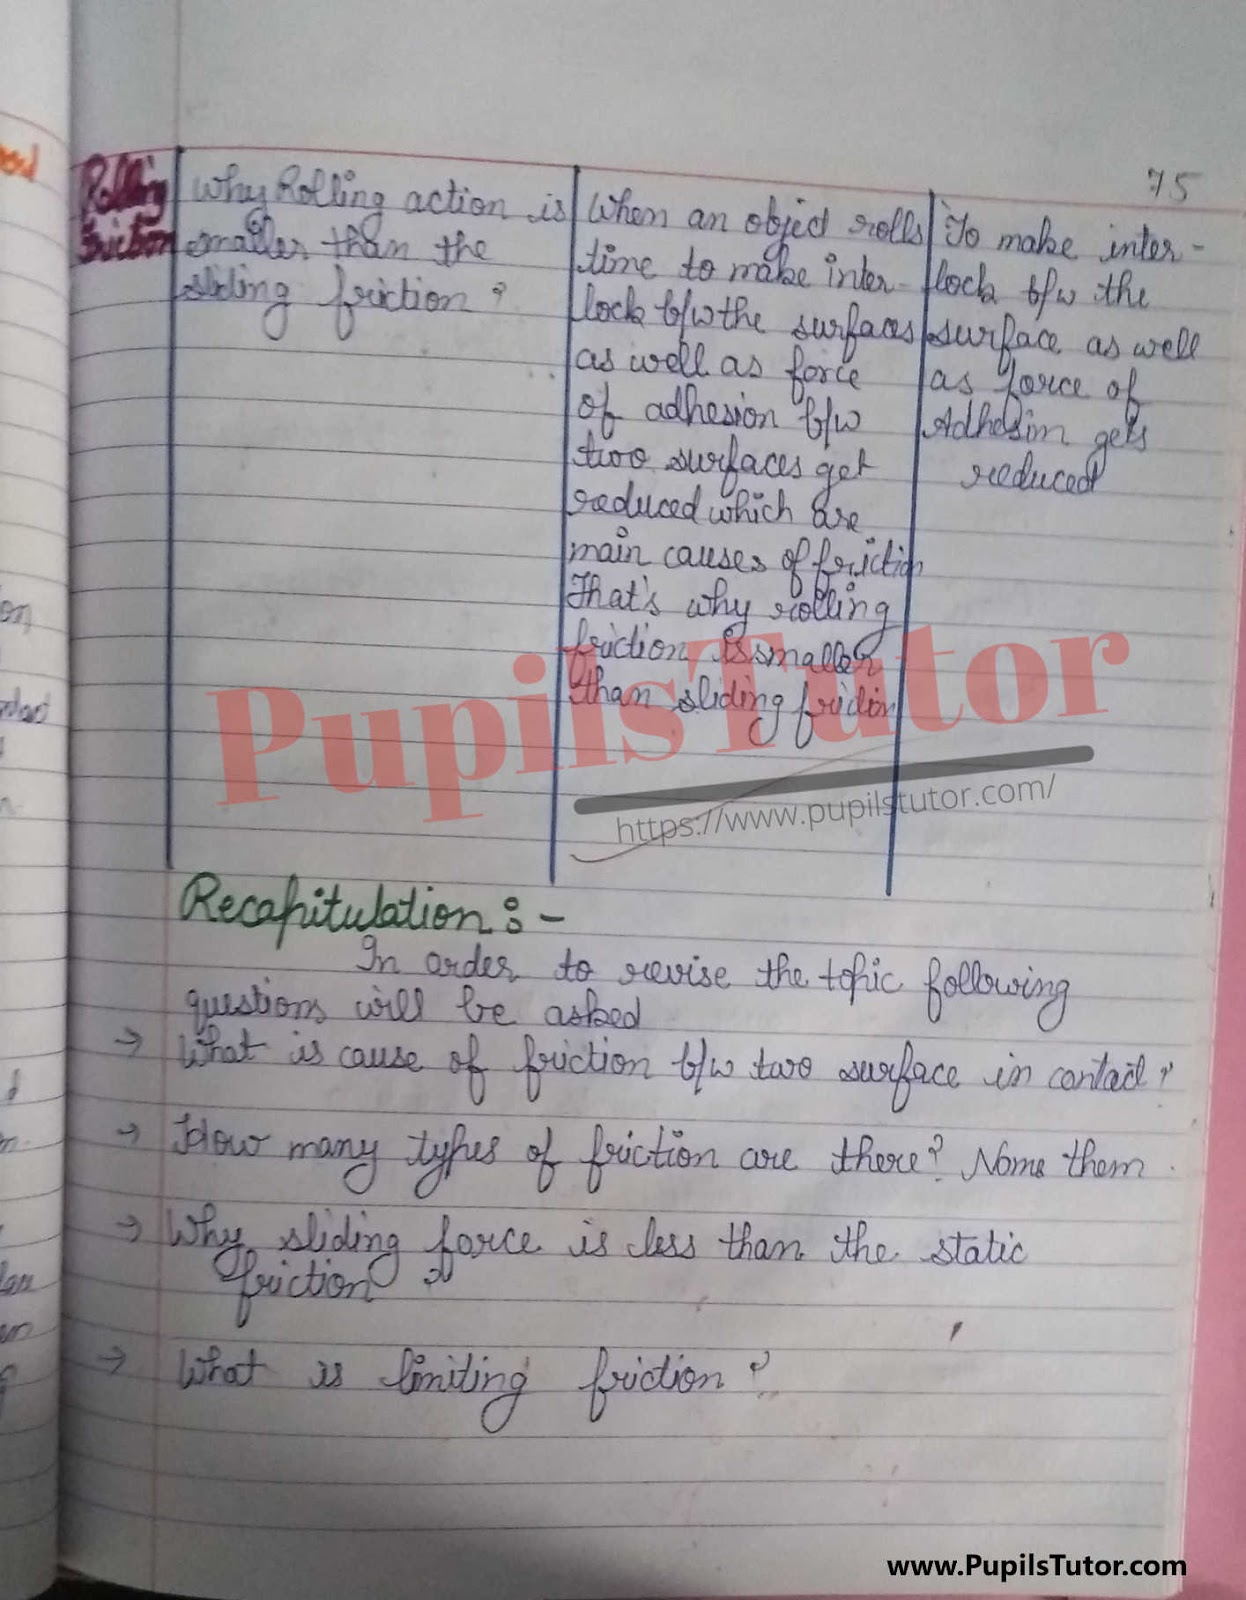 75
Rolling
Friction
Why Rolling action is
smaller than the
sliding friction?
When an object rolls
time to make inter
lock b/w the surfaces
as well as force
of adhesion b/w
two surfaces get
reduced which are
main causes of friction
That's why rolling
friction is smaller
than sliding friction
To make inter-
lock b/w the
surface as well
as force of
Adhesion gets
reduced
PupilsTutor
https://www.pupilstutor.com/
Recapitulation :-
In order to revise the topic following
questions will be asked
→ What is cause of friction b/w two surface in contact?
→ How many types of friction are there? Name them.
→ Why sliding force is less than the static
friction?
→ What is limiting friction?
www.PupilsTutor.com